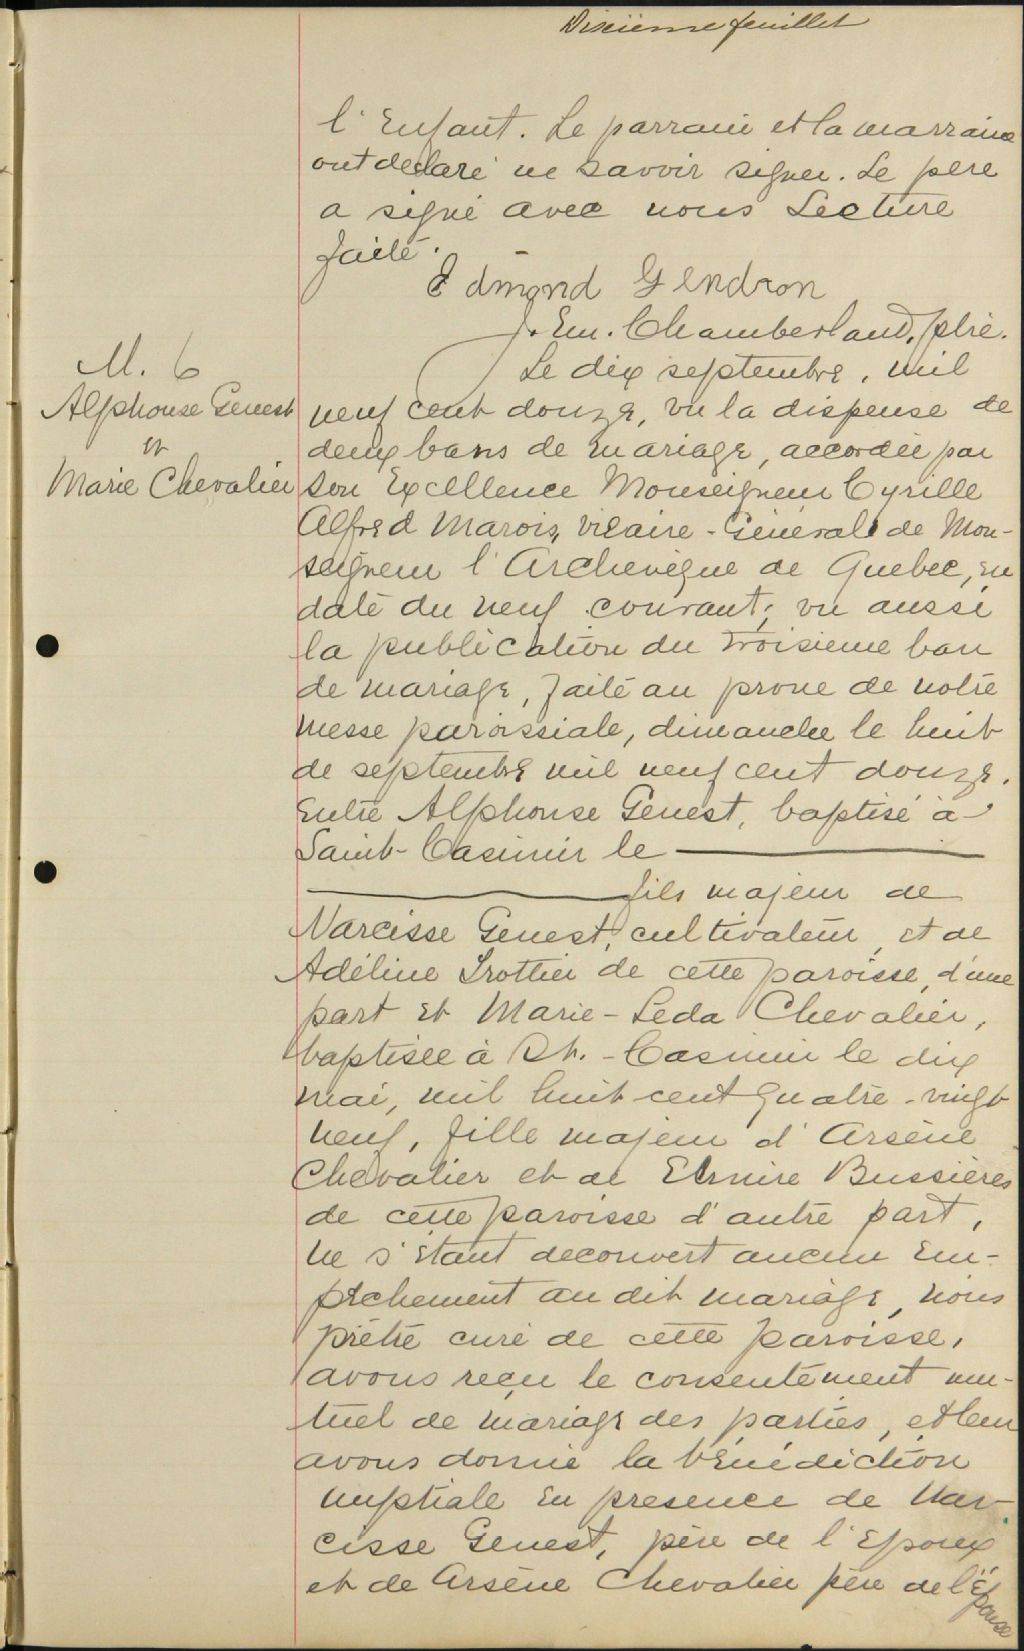 Dixième feuillet
l'Enfant. Le parrain et la marraine
ont declaré ne savoir signer. Le père
a signé avec nous Lecture
faite.
Edmond Gendron
J. Em. Chamberland, ptre.
M. 6
Alphonse Genest
et
Marie Chevalier
Le dix septembre, mil
neuf cent douze, vu la dispense de
deux bans de mariage, accordée par
Son Excellence Monseigneur Cyrille
Alfred Marois, vicaire-Général de Mon-
seigneur l'Archevêque de Quebec, en
date du neuf courant; vu aussi
la publication du troisieme ban
de mariage, faite au prone de notre
messe paroissiale, dimanche le huit
de septembre mil neuf cent douze.
Entre Alphonse Genest, baptisé à
Saint-Casimir le
fils majeur de
Narcisse Genest, cultivateur, et de
Adéline Trottier de cette paroisse, d'une
part et Marie-Leda Chevalier,
baptisée à St.-Casimir le dix
mai, mil huit cent quatre-vingt
neuf, fille majeur d'Arsène
Chevalier et de Elmire Bussières
de cette paroisse d'autre part,
ne s'étant decouvert aucun em-
pêchement au dit mariage, nous
prêtre curé de cette paroisse,
avons reçu le consentement mu-
tuel de mariage des parties, et leur
avons donné la bénédiction
nuptiale en presence de Nar-
cisse Genest, père de l'Epoux
et de Arsène Chevalier père de l'Épouse